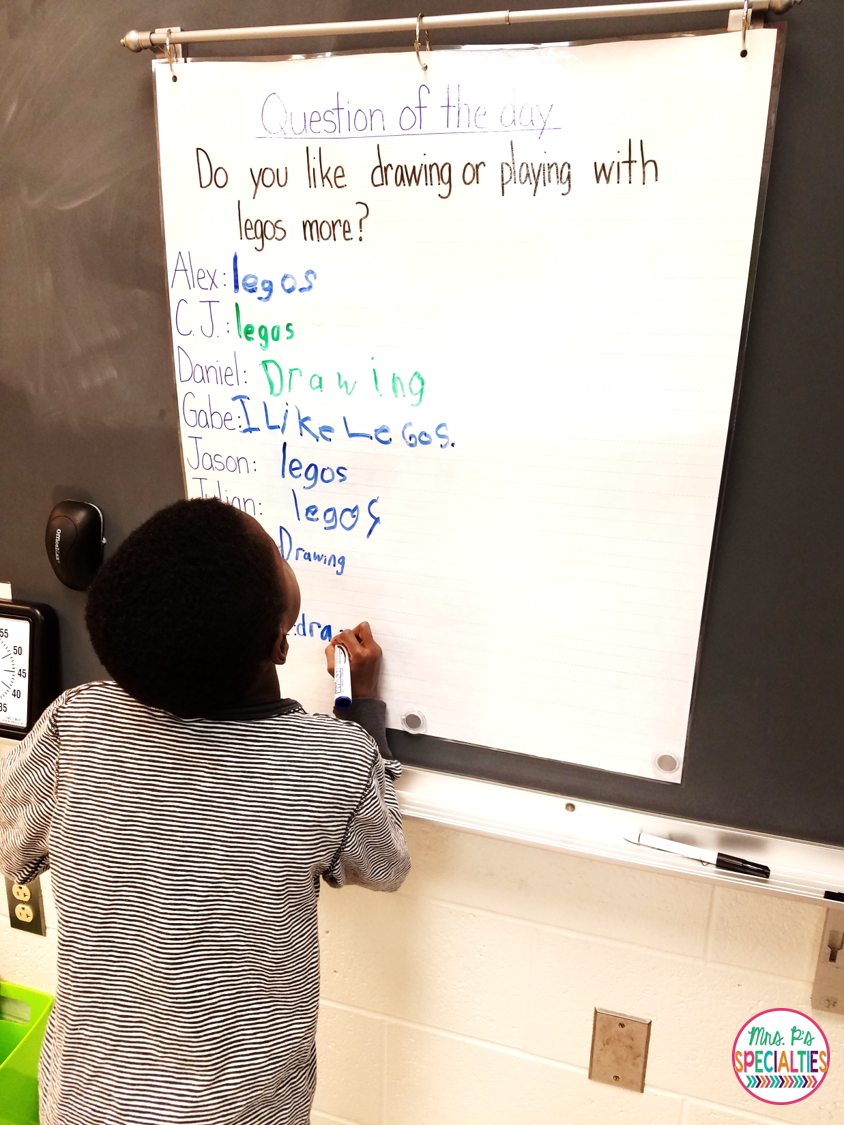 Question of the day
Do you like drawing or playing with
legos more?
Alex: legos
C.J.: legos
Daniel: Drawing
Gabe: I Like LeGos.
Jason: legos
Julian: legos
Drawing
: dra
55
50
45
40
35
Mrs. P's
SPECIALTIES